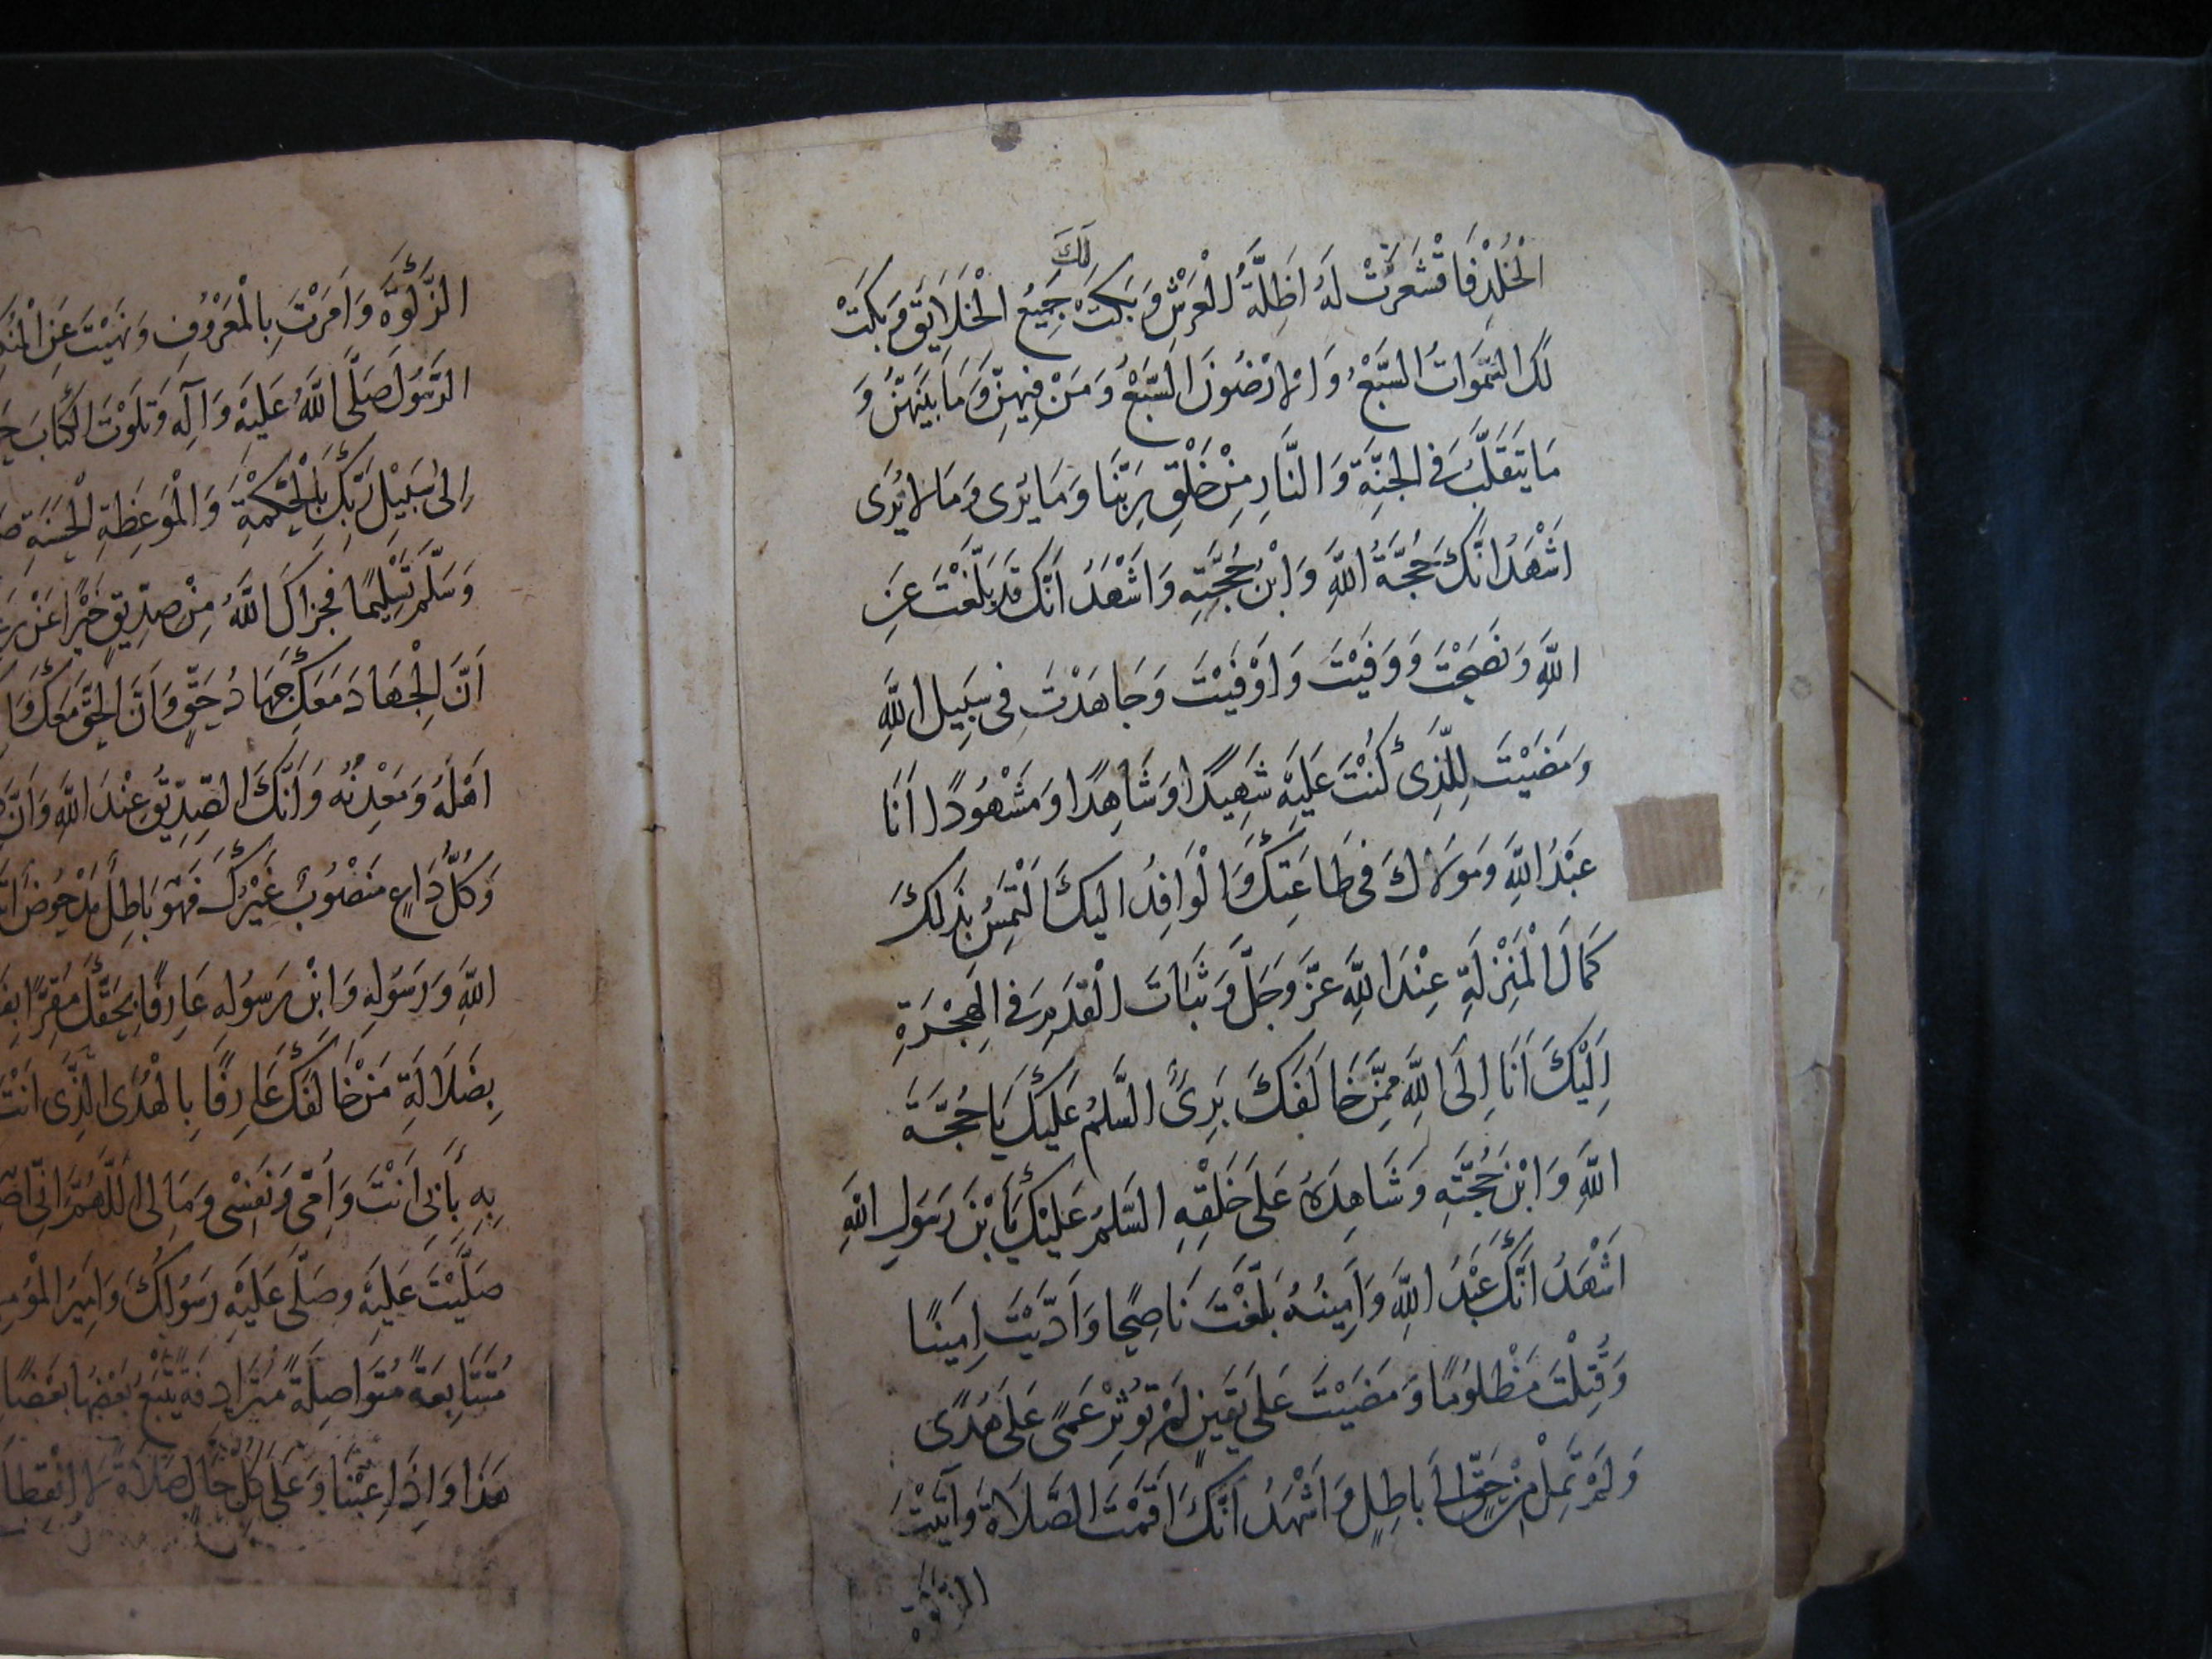 الْخُلْدِ فَاقْشَعَرَّتْ لَهُ اَظِلَّةُ الْعَرْشِ وَبَكَتْ لَكَ جَمِيْعُ الْخَلَايَقِ وَبَكَتْ
لَكَ السَّمَوَاتُ السَّبْعُ وَالْاَرْضُونَ السَّبْعُ وَمَنْ فِيهِنَّ وَمَا بَيْنَهُنَّ وَ
مَا يَتَقَلَّبُ فِى الْجَنَّةِ وَالنَّارِ مِنْ خَلْقِ رَبِّنَا وَمَا يُرَى وَمَا لَا يُرَى
اَشْهَدُ اَنَّكَ حُجَّةُ اللَّهِ وَابْنُ حُجَّتِهِ وَاَشْهَدُ اَنَّكَ قَدْ بَلَّغْتَ عَنِ
اللَّهِ وَنَصَحْتَ وَوَفَيْتَ وَاَوْفَيْتَ وَجَاهَدْتَ فِى سَبِيلِ اللَّهِ
وَمَضَيْتَ لِلَّذِى كُنْتَ عَلَيْهِ شَهِيدًا وَشَاهِدًا وَمَشْهُودًا اَنَا
عَبْدُ اللَّهِ وَمَوْلَاكَ فِى طَاعَتِكَ وَالْوَافِدُ اِلَيْكَ اَلْتَمِسُ بِذَلِكَ
كَمَالَ الْمَنْزِلَةِ عِنْدَ اللَّهِ عَزَّ وَجَلَّ وَثَبَاتَ الْقَدَمِ فِى الْهِجْرَةِ
اِلَيْكَ اَنَا اِلَى اللَّهِ مِمَّنْ خَالَفَكَ بَرِىٌ السَّلمُ عَلَيْكَ يَا حُجَّةَ
اللَّهِ وَابْنَ حُجَّتِهِ وَشَاهِدَهُ عَلَى خَلْقِهِ السَّلمُ عَلَيْكَ يَابْنَ رَسُولِ اللهِ
اَشْهَدُ اَنَّكَ عَبْدُ اللَّهِ وَاَمِينُهُ بَلَّغْتَ نَاصِحًا وَاَدَّيْتَ اَمِينًا
وَقُتِلْتَ مَظْلُومًا وَمَضَيْتَ عَلَى يَقِينٍ لَمْ تُوثِرْ عَمًى عَلَى هُدًى
وَلَمْ تَمِلْ مِنْ حَقٍّ اِلَى بَاطِلٍ وَاَشْهَدُ اَنَّكَ اَقَمْتَ الصَّلَاةَ وَاتَيْتَ
الزكوة
الزَّكَوةَ وَاَمَرْتَ بِالْمَعْرُوفِ وَنَهَيْتَ عَنِ الْمُنْكَ
الرَّسُولَ صَلَّى اللَّهُ عَلَيْهِ وَآلِهِ وَتَلَوْتَ الْكِتَابَ
اِلىٰ سَبِيْلِ رَبِّكَ بِالْحِكْمَةِ وَالْمَوْعِظَةِ الْحَسَنَةِ
وَسَلَّمَ تَسْلِيمًا فَجَزَاكَ اللَّهُ مِنْ صِدِّيقٍ خَيْرًا عَنْ
اَنَّ الْجِهَادَ مَعَكَ جِهَادُ حَقٍّ وَاَنَّ الْحَقَّ مَعَكَ وَ
اَهْلُهُ وَمَعْدِنُهُ وَاَنَّكَ الصِّدِّيقُ عِنْدَ اللَّهِ وَاَنَّ
وَكُلُّ دَاعٍ مَنْصُوبٌ غَيْرُكَ فَهُوَ بَاطِلٌ مَدْحُوضٌ
اللَّهِ وَرَسُولِهِ وَابْنِ رَسُولِهِ عَارِفًا بِحَقِّكَ مُقِرًّا
بِضَلَالَةِ مَنْ خَالَفَكَ عَارِفًا بِالْهُدَى الَّذِى اَنْتَ
بِهِ بِاَبِى اَنْتَ وَاُمِّى وَنَفْسِى وَمَالِى اَللَّهُمَّ اِنِّى
صَلَّيْتَ عَلَيْهِ وَصَلَّى عَلَيْهِ رَسُولُكَ وَاَمِيرُ الْمُؤْمِ
مُتَتَابِعَةً مُتَوَاصِلَةً مُتَرَادِفَةً يَتْبَعُ بَعْضُهَا بَعْضًا
هَذَا وَاِذَا غِبْنَا وَعَلَى كُلِّ حَالٍ صَلَاةً لَا انْقِطَاعَ